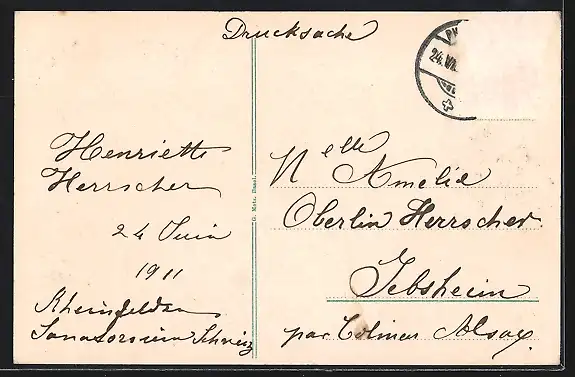 Drucksache
24. VI.
Henriette
Herrscher
24 Juin
1911
Rheinfelden
Sanatorium Schweiz
G. Metz, Basel.
Melle Amélie
Oberlin Herrscher.
Jebsheim
par Colmar Alsay.